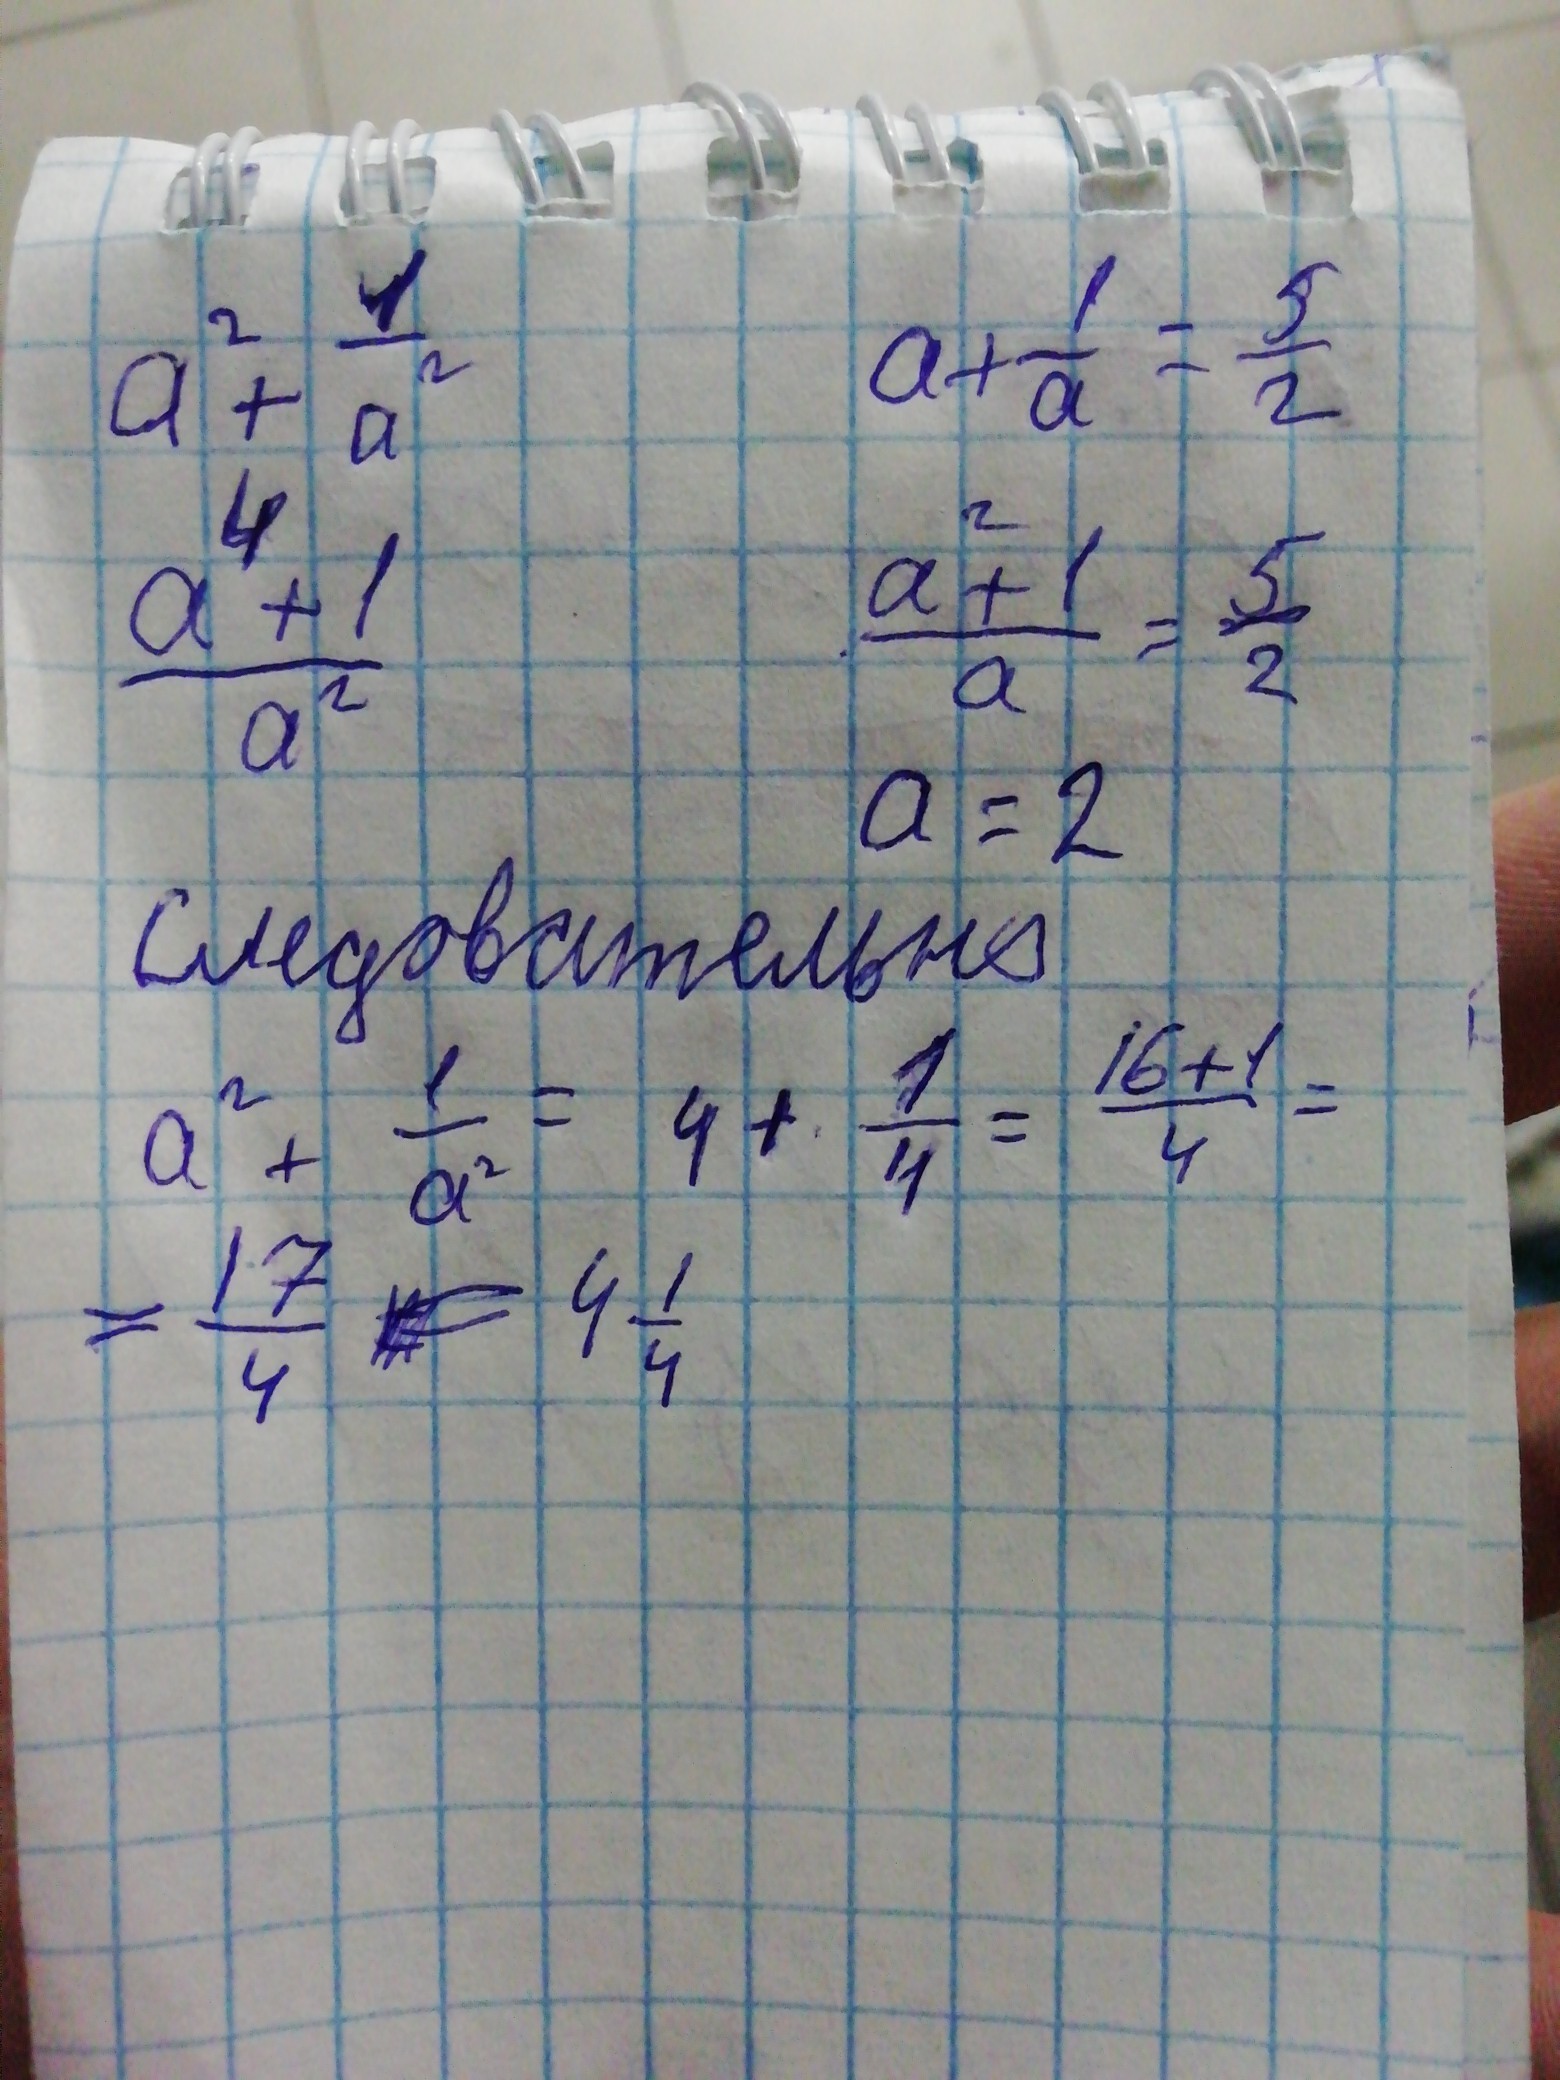 a² + 1/a²    a + 1/a = 5/2
(a⁴ + 1)/a²    (a² + 1)/a = 5/2
a = 2
Следовательно
a² + 1/a² = 4 + 1/4 = (16+1)/4 =
= 17/4 = 4 1/4